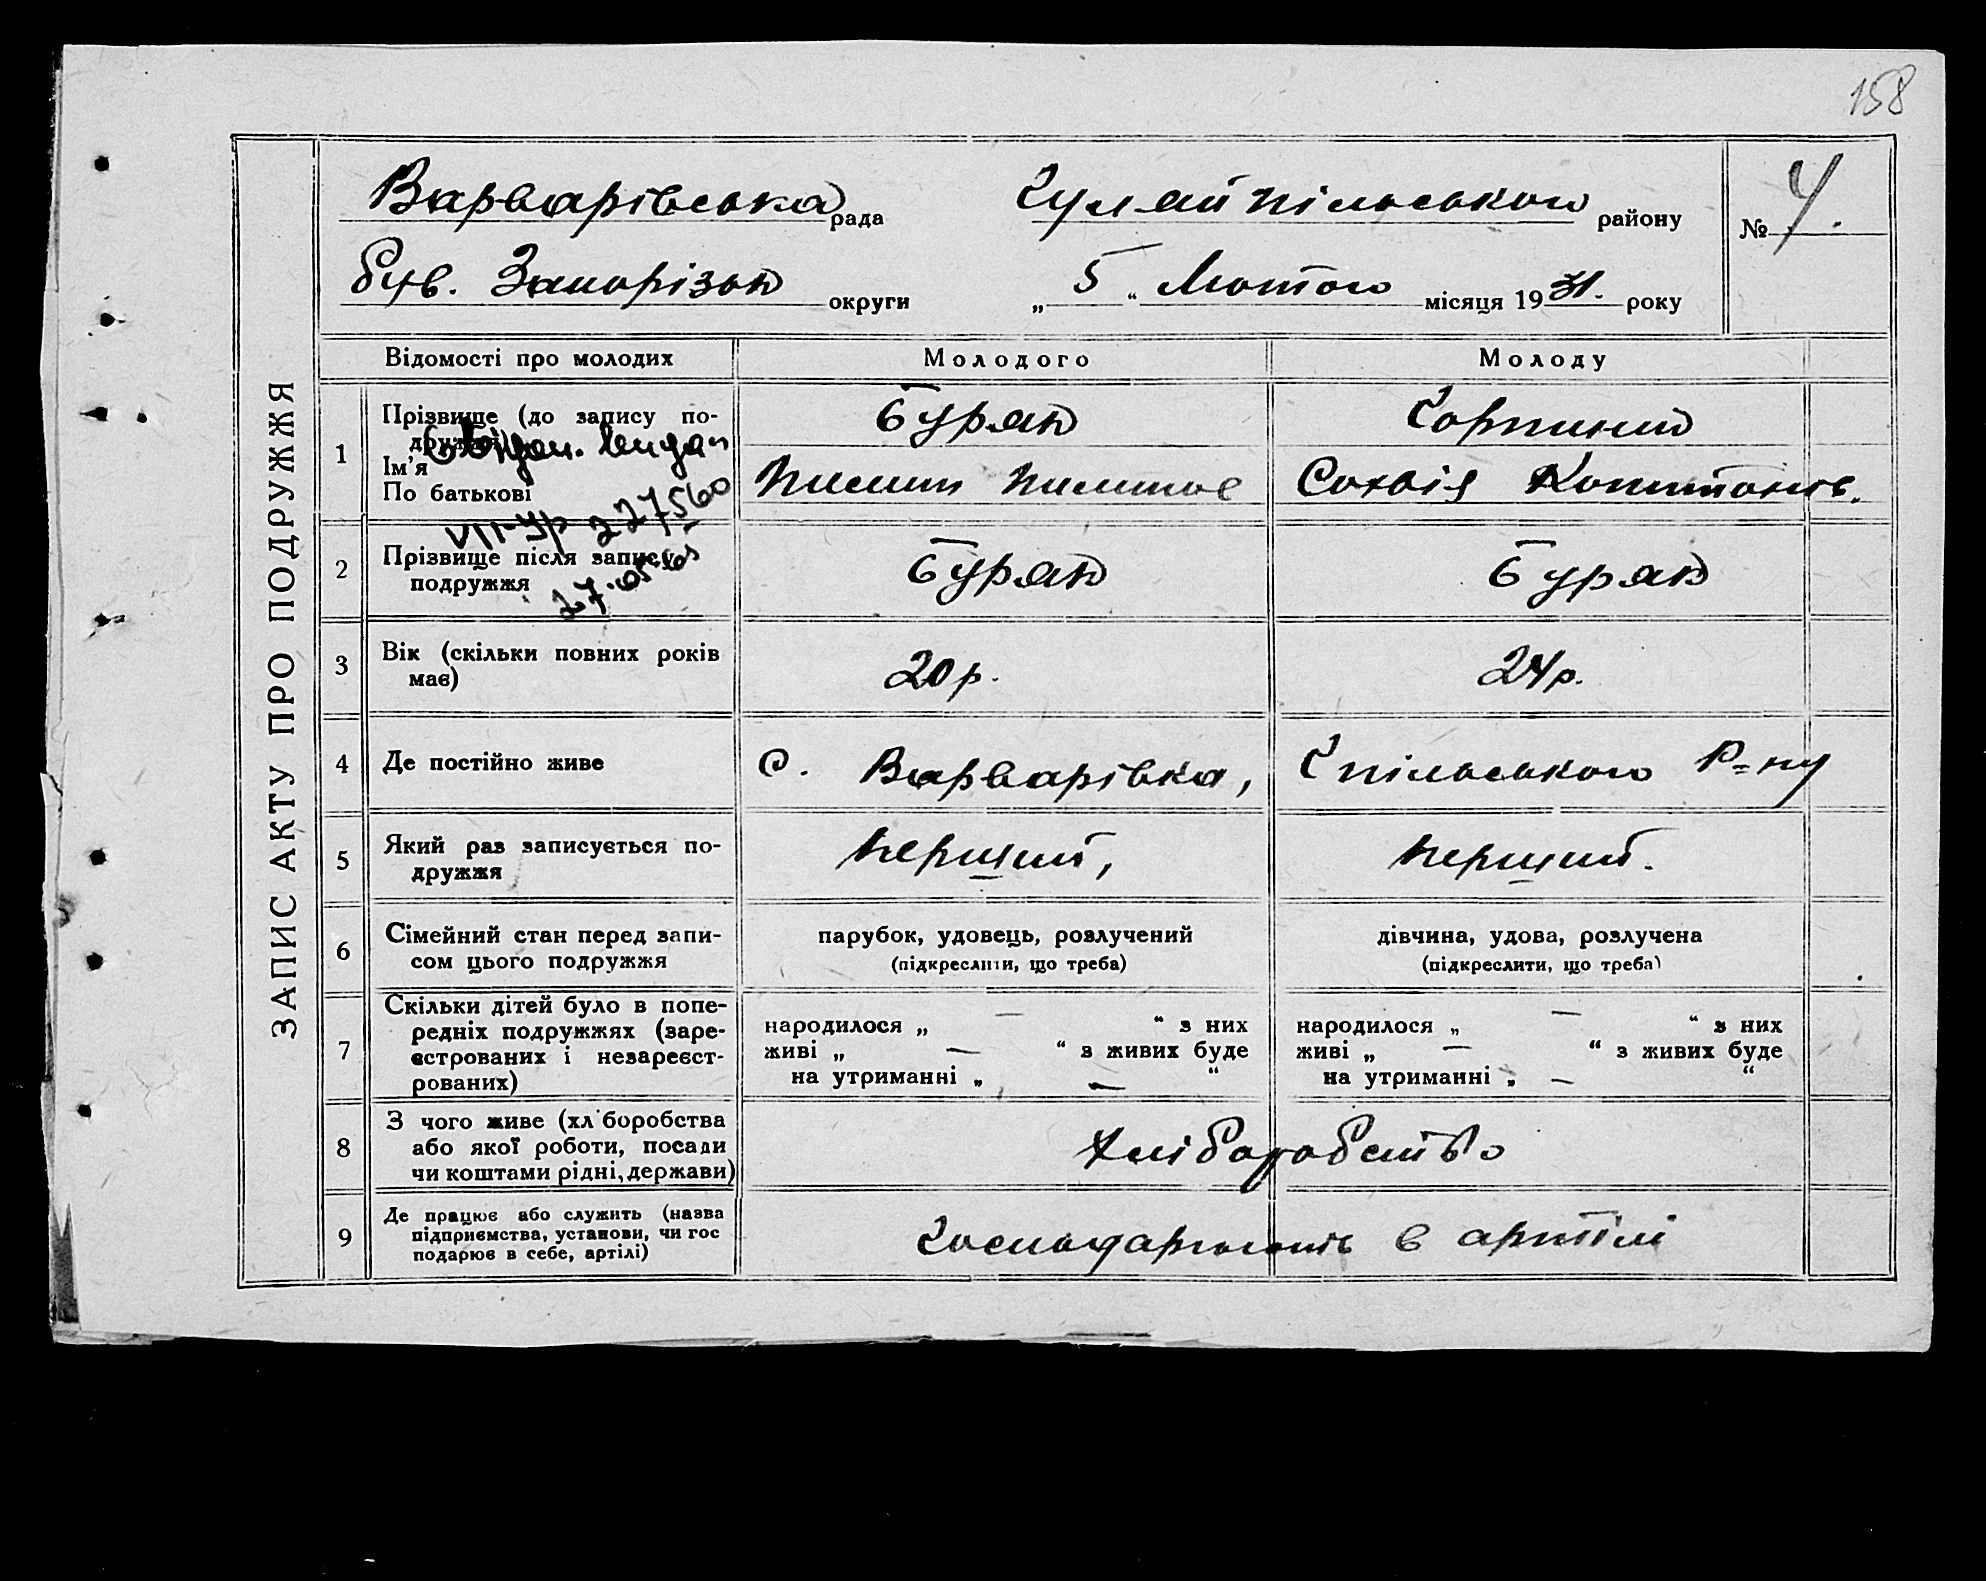 158
Варварівська рада Гуляйпільського району № 4.
був. Запорізьк округи „ 5 “ Лютого місяця 1931. року
ЗАПИС АКТУ ПРО ПОДРУЖЖЯ
Відомості про молодих Молодого Молоду
1 Прізвище (до запису по-
Буряк
Ім’я
По батькові
Пилип Пилипов Софія
VII-УР 227560
27.05.
2 Прізвище після запису
подружжя
Буряк Буряк
3 Вік (скільки повних років
має)
20 р. 24 р.
4 Де постійно живе с. Варварівка, Гпільського Р=ну
5 Який раз записується по-
дружжя
перший, перший.
6 Сімейний стан перед запи-
сом цього подружжя
парубок, удовець, розлучений дівчина, удова, розлучена
(підкреслити, що треба) (підкреслити, що треба)
7 Скільки дітей було в попе-
редніх подружжях (заре-
єстрованих і незареєст-
рованих)
народилося „ — “ з них народилося „ — “ з них
живі „ — “ з живих буде живі „ — “ з живих буде
на утриманні „ — “ на утриманні „ — “
8 З чого живе (хліборобства
або якої роботи, посади
чи коштами рідні, держави)
Хліборобство
9 Де працює або служить (назва
підприємства, установи, чи гос
подарює в себе, артілі)
Господарюють в артілі